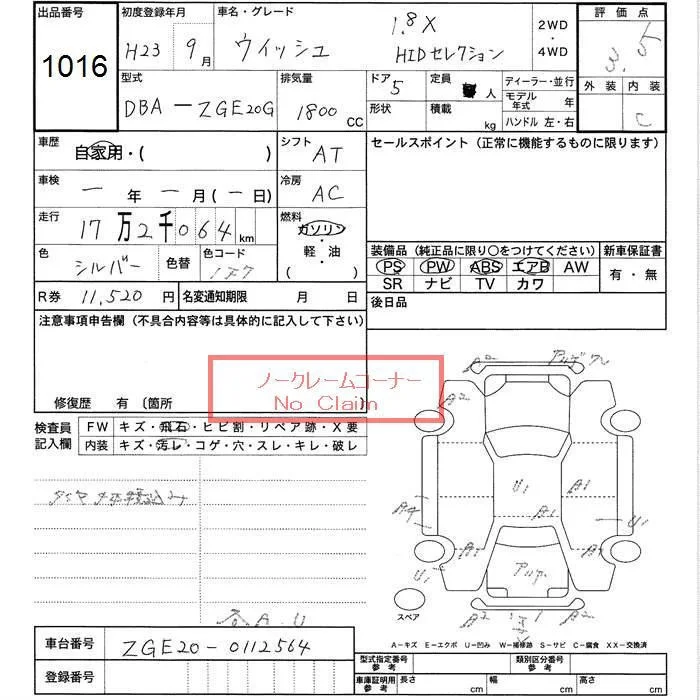 出品番号
1016
初度登録年月
H23 9月
車名・グレード
ウィッシュ
1.8 X
HIDセレクション
2WD
・
4WD
評価点
3.5
外装 内装
C
型式
DBA-ZGE20G
排気量
1800 CC
ドア 5
形状
定員 人
積載 kg
ディーラー・並行
モデル年式 年
ハンドル 左・右
車歴
自家用・( )
シフト
AT
車検
ー年ー月(ー日)
冷房
AC
走行
17万2千064km
燃料
ガソリン
・
軽・油
( )
色
シルバー
色替
色コード
1F7
R券 11,520円
名変通知期限 月 日
セールスポイント(正常に機能するものに限ります)
装備品(純正品に限り○をつけてください)
PS PW ABS エアB AW
SR ナビ TV カワ
新車保証書
有・無
後日品
注意事項申告欄(不具合内容等は具体的に記入して下さい)
ノークレームコーナー
No Claim
修復歴 有 〔箇所
検査員
記入欄
FW キズ・飛石・ヒビ割・リペア跡・X要
内装 キズ・汚レ・コゲ・穴・スレ・キレ・破レ
各A.U
A2
A2
A2
U1
A1
A1
A1
A4
U1
A1
U1
A2
A2
スペア
A-キズ E-エクボ U-凹み W-補修跡 S-サビ C-腐食 XX-交換済
車台番号 ZGE20-0112564
登録番号
型式指定番号
参考
類別区分番号
参考
車庫証明用
参考
長さ cm
幅 cm
高さ cm